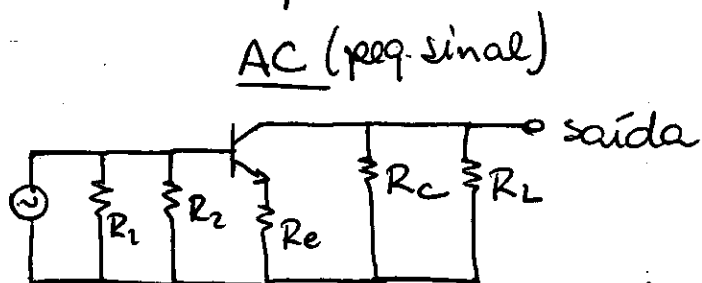 AC (peq. sinal)
saída
R1
R2
Re
RC
RL